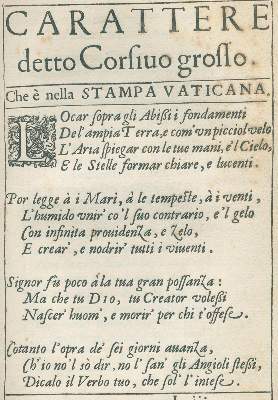 CARATTERE
detto Corsiuo grosso.
Che è nella STAMPA VATICANA.
LOcar sopra gli Abissi i fondamenti
Del'ampia Terra, e com' vn picciol velo
L'Aria spiegar con le tue mani, e'l Cielo,
E le Stelle formar chiare, e lucenti.
Por legge à i Mari, à le tempeste, à i venti,
L'humido vnir' co'l suo contrario, e'l gelo
Con infinita prouidenza, e zelo,
E crear', e nodrir' tutti i viuenti.
Signor fù poco à la tua gran possanza:
Ma che tu DIO, tu Creator volessi
Nascer' huom', e morir' per chi t'offese.
Cotanto l'opra de' sei giorni auanza,
Ch'io no'l sò dir, no'l san' gli Angioli stessi,
Dicalo il Verbo tuo, che sol' l'intese.